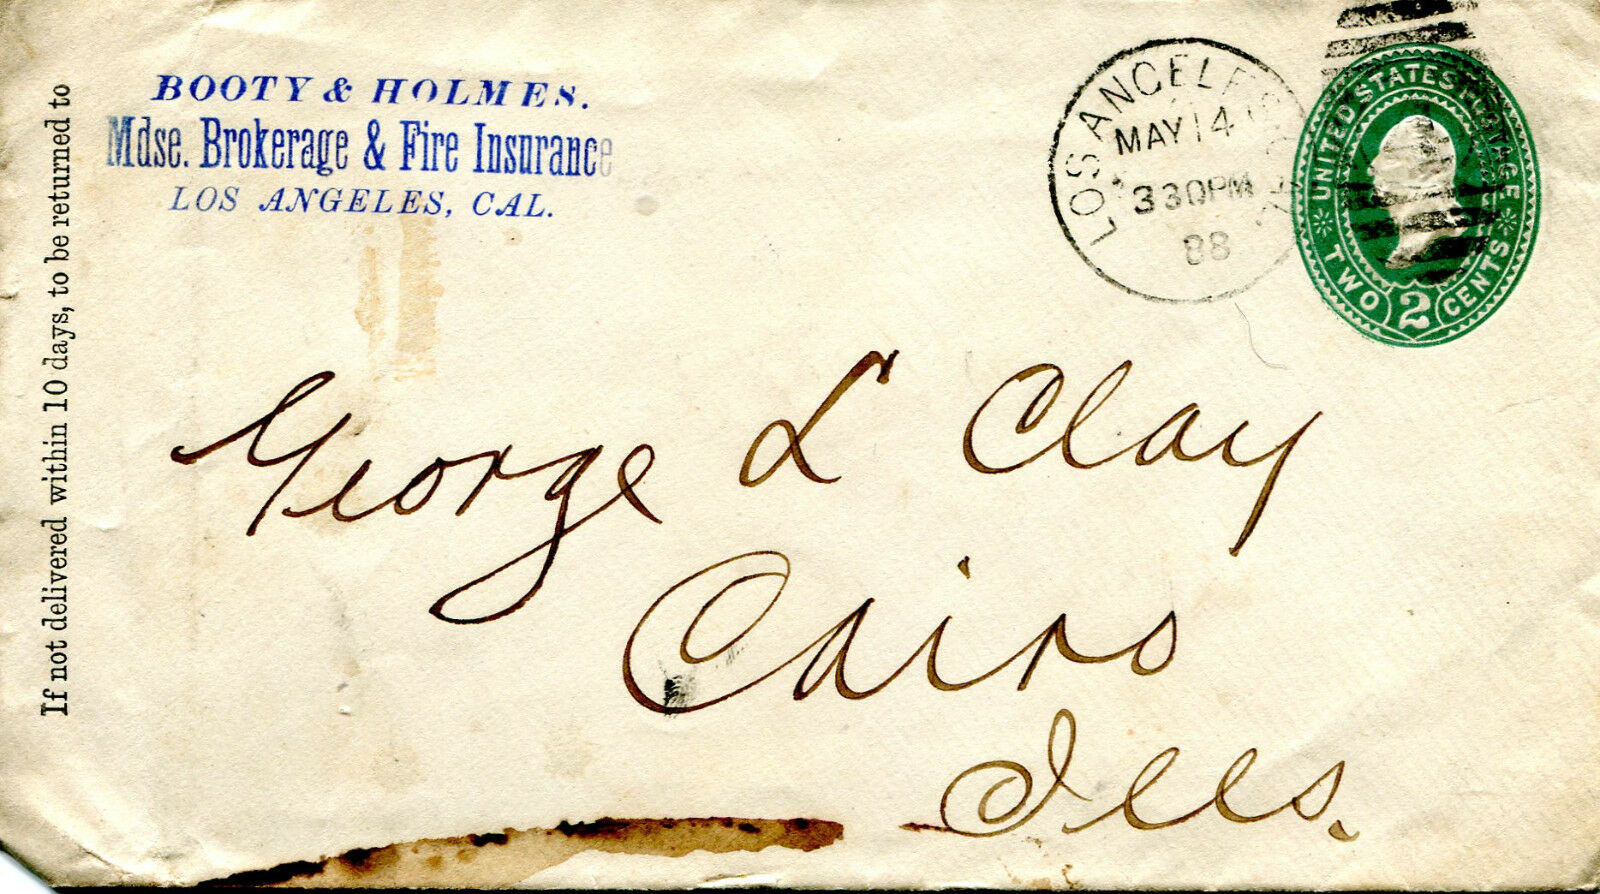 If not delivered within 10 days, to be returned to
BOOTY & HOLMES.
Mdse. Brokerage & Fire Insurance
LOS ANGELES, CAL.
LOS ANGELES
MAY 14
330PM
88
UNITED STATES POSTAGE
TWO 2 CENTS
George L Clay
Cairo
Ills.